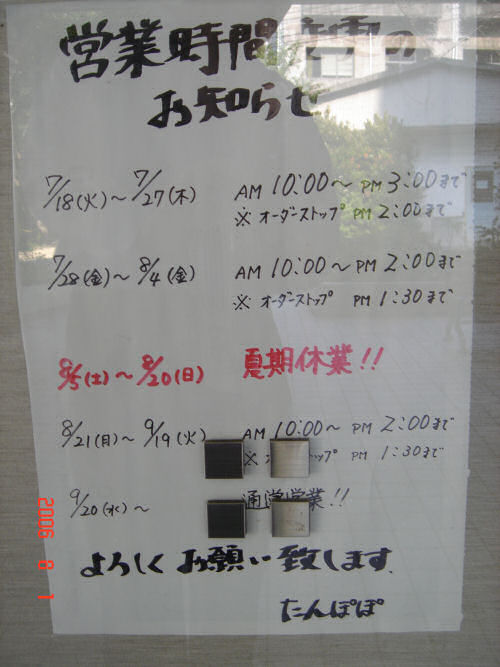 営業時間変更の
お知らせ
7/18(火)～7/27(木) AM 10:00～PM 3:00まで
※オーダーストップ PM 2:00まで
7/28(金)～8/4(金) AM 10:00～PM 2:00まで
※オーダーストップ PM 1:30まで
8/5(土)～8/20(日) 夏期休業!!
8/21(月)～9/19(火) AM 10:00～PM 2:00まで
※オ ストップ PM 1:30まで
9/20(水)～ 通常営業!!
よろしくお願い致します.
たんぽぽ
2006 8 1